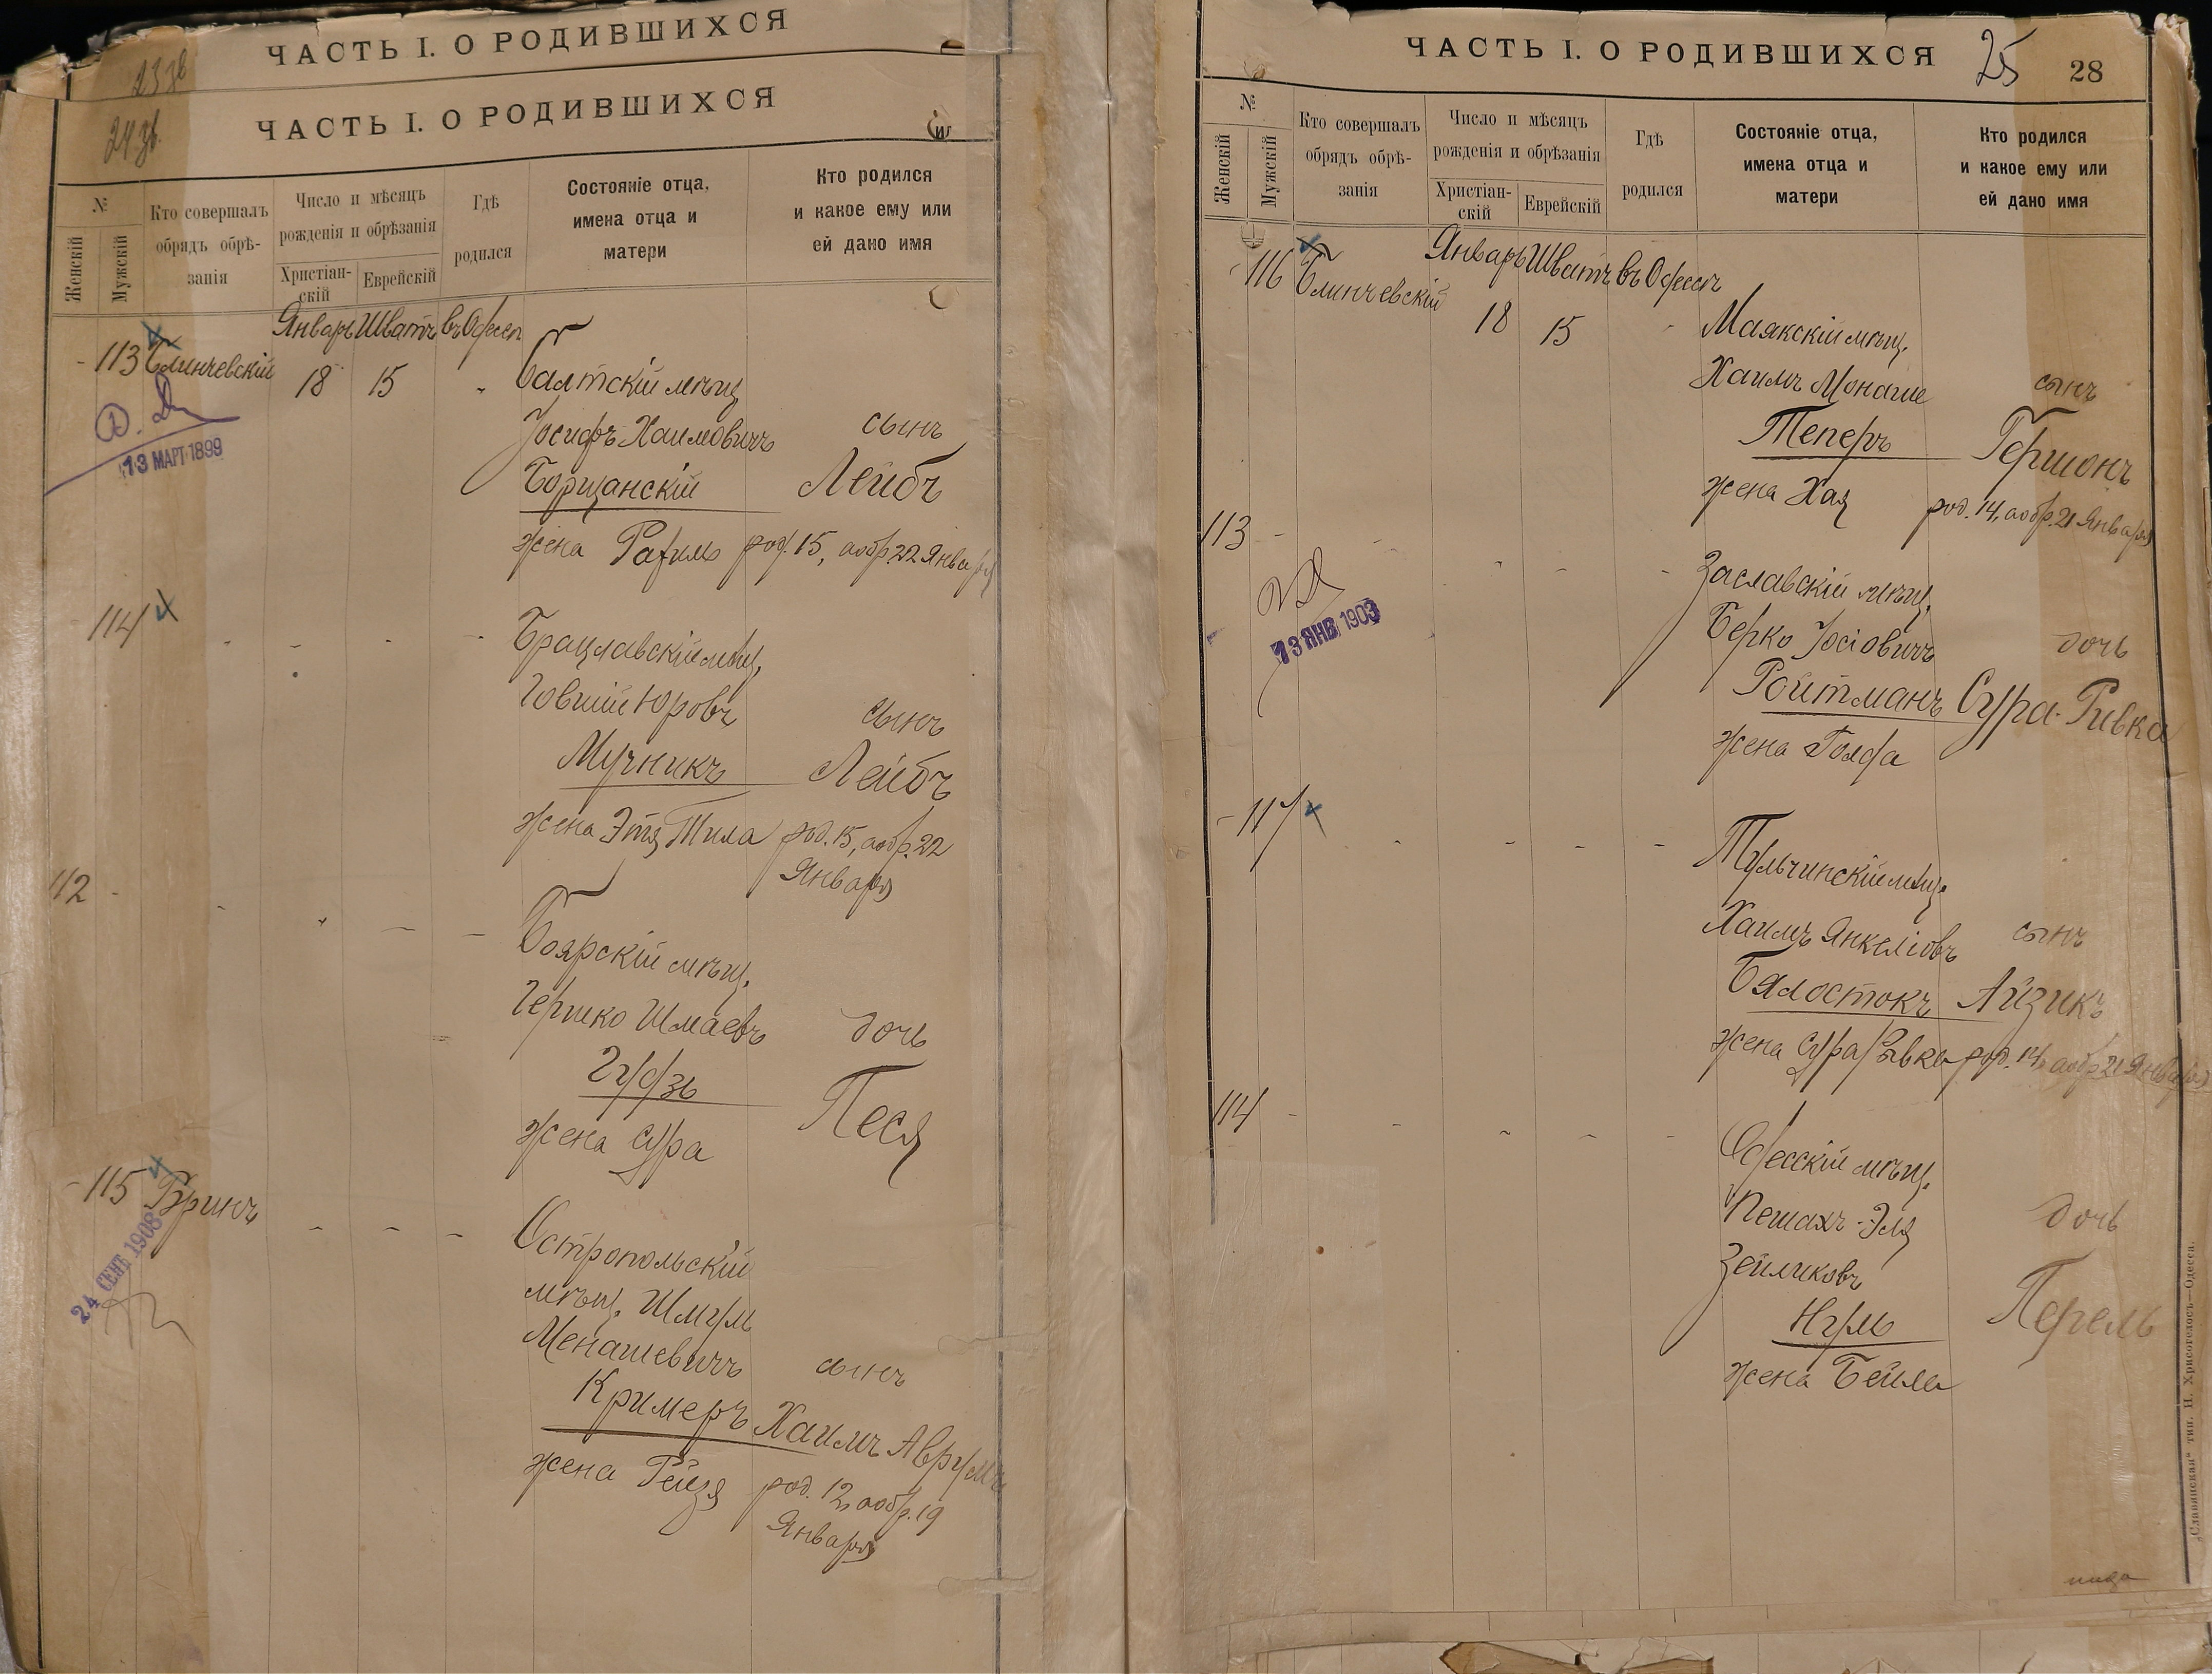 ЧАСТЬ I. О РОДИВШИХСЯ
23 
ЧАСТЬ I. О РОДИВШИХСЯ
24
№
Женскій
Мужскій
Кто совершалъ
обрядъ обрѣ-
занія
Число и мѣсяцъ
рожденія и обрѣзанія
Христіан-
скій
Еврейскій
Гдѣ
родился
Состояніе отца,
имена отца и
матери
Кто родился
и какое ему или
ей дано имя
Январь Шватъ въ Одессѣ
113 Блинчевскій 18 15
13 МАРТ 1899
Балтскій мѣщ.
Іосифъ Хаимовичъ сынъ
Борщанскій Лейбъ
жена Рахиль род. 15, а обр. 22 Января
114
Брацлавскій мѣщ.
Говшій Юровъ сынъ
Мучникъ Лейбъ
жена Этя Тила род. 15, а обр. 22
Января
112
Боярскій мѣщ.
Гершко Шмаевъ дочь
жена Сура Песя
115 Бринъ
24 СЕНТ 1908
Остропольскій
мѣщ. Шмуль
Менашевичъ сынъ
Кримеръ Хаимъ Аврумъ
жена Рейзя род. 12, а обр. 19
Января
ЧАСТЬ I. О РОДИВШИХСЯ
25 28
№
Женскій
Мужскій
Кто совершалъ
обрядъ обрѣ-
занія
Число и мѣсяцъ
рожденія и обрѣзанія
Христіан-
скій
Еврейскій
Гдѣ
родился
Состояніе отца,
имена отца и
матери
Кто родился
и какое ему или
ей дано имя
Январь Шватъ въ Одессѣ
116 Блинчевскій 18 15
Маякскій мѣщ.
Хаимъ Монаше сынъ
Теперъ Гершонъ
жена Хая род. 14, а обр. 21 Января
113
13 ЯНВ 1903
Заславскій мѣщ.
Берко Іосіовичъ дочь
Ройтманъ Сура-Ривка
жена Голда
117
Тульчинскій мѣщ.
Хаимъ Янкеліовъ сынъ
Бялостокъ Айзикъ
жена Сура Рывка род. 14, а обр. 21 Января
114
Одесскій мѣщ.
Пешахъ-Эля дочь
Зейликовъ
Перель
жена Бейла
„Славянская“ тип. Н. Хрисогелосъ—Одесса.